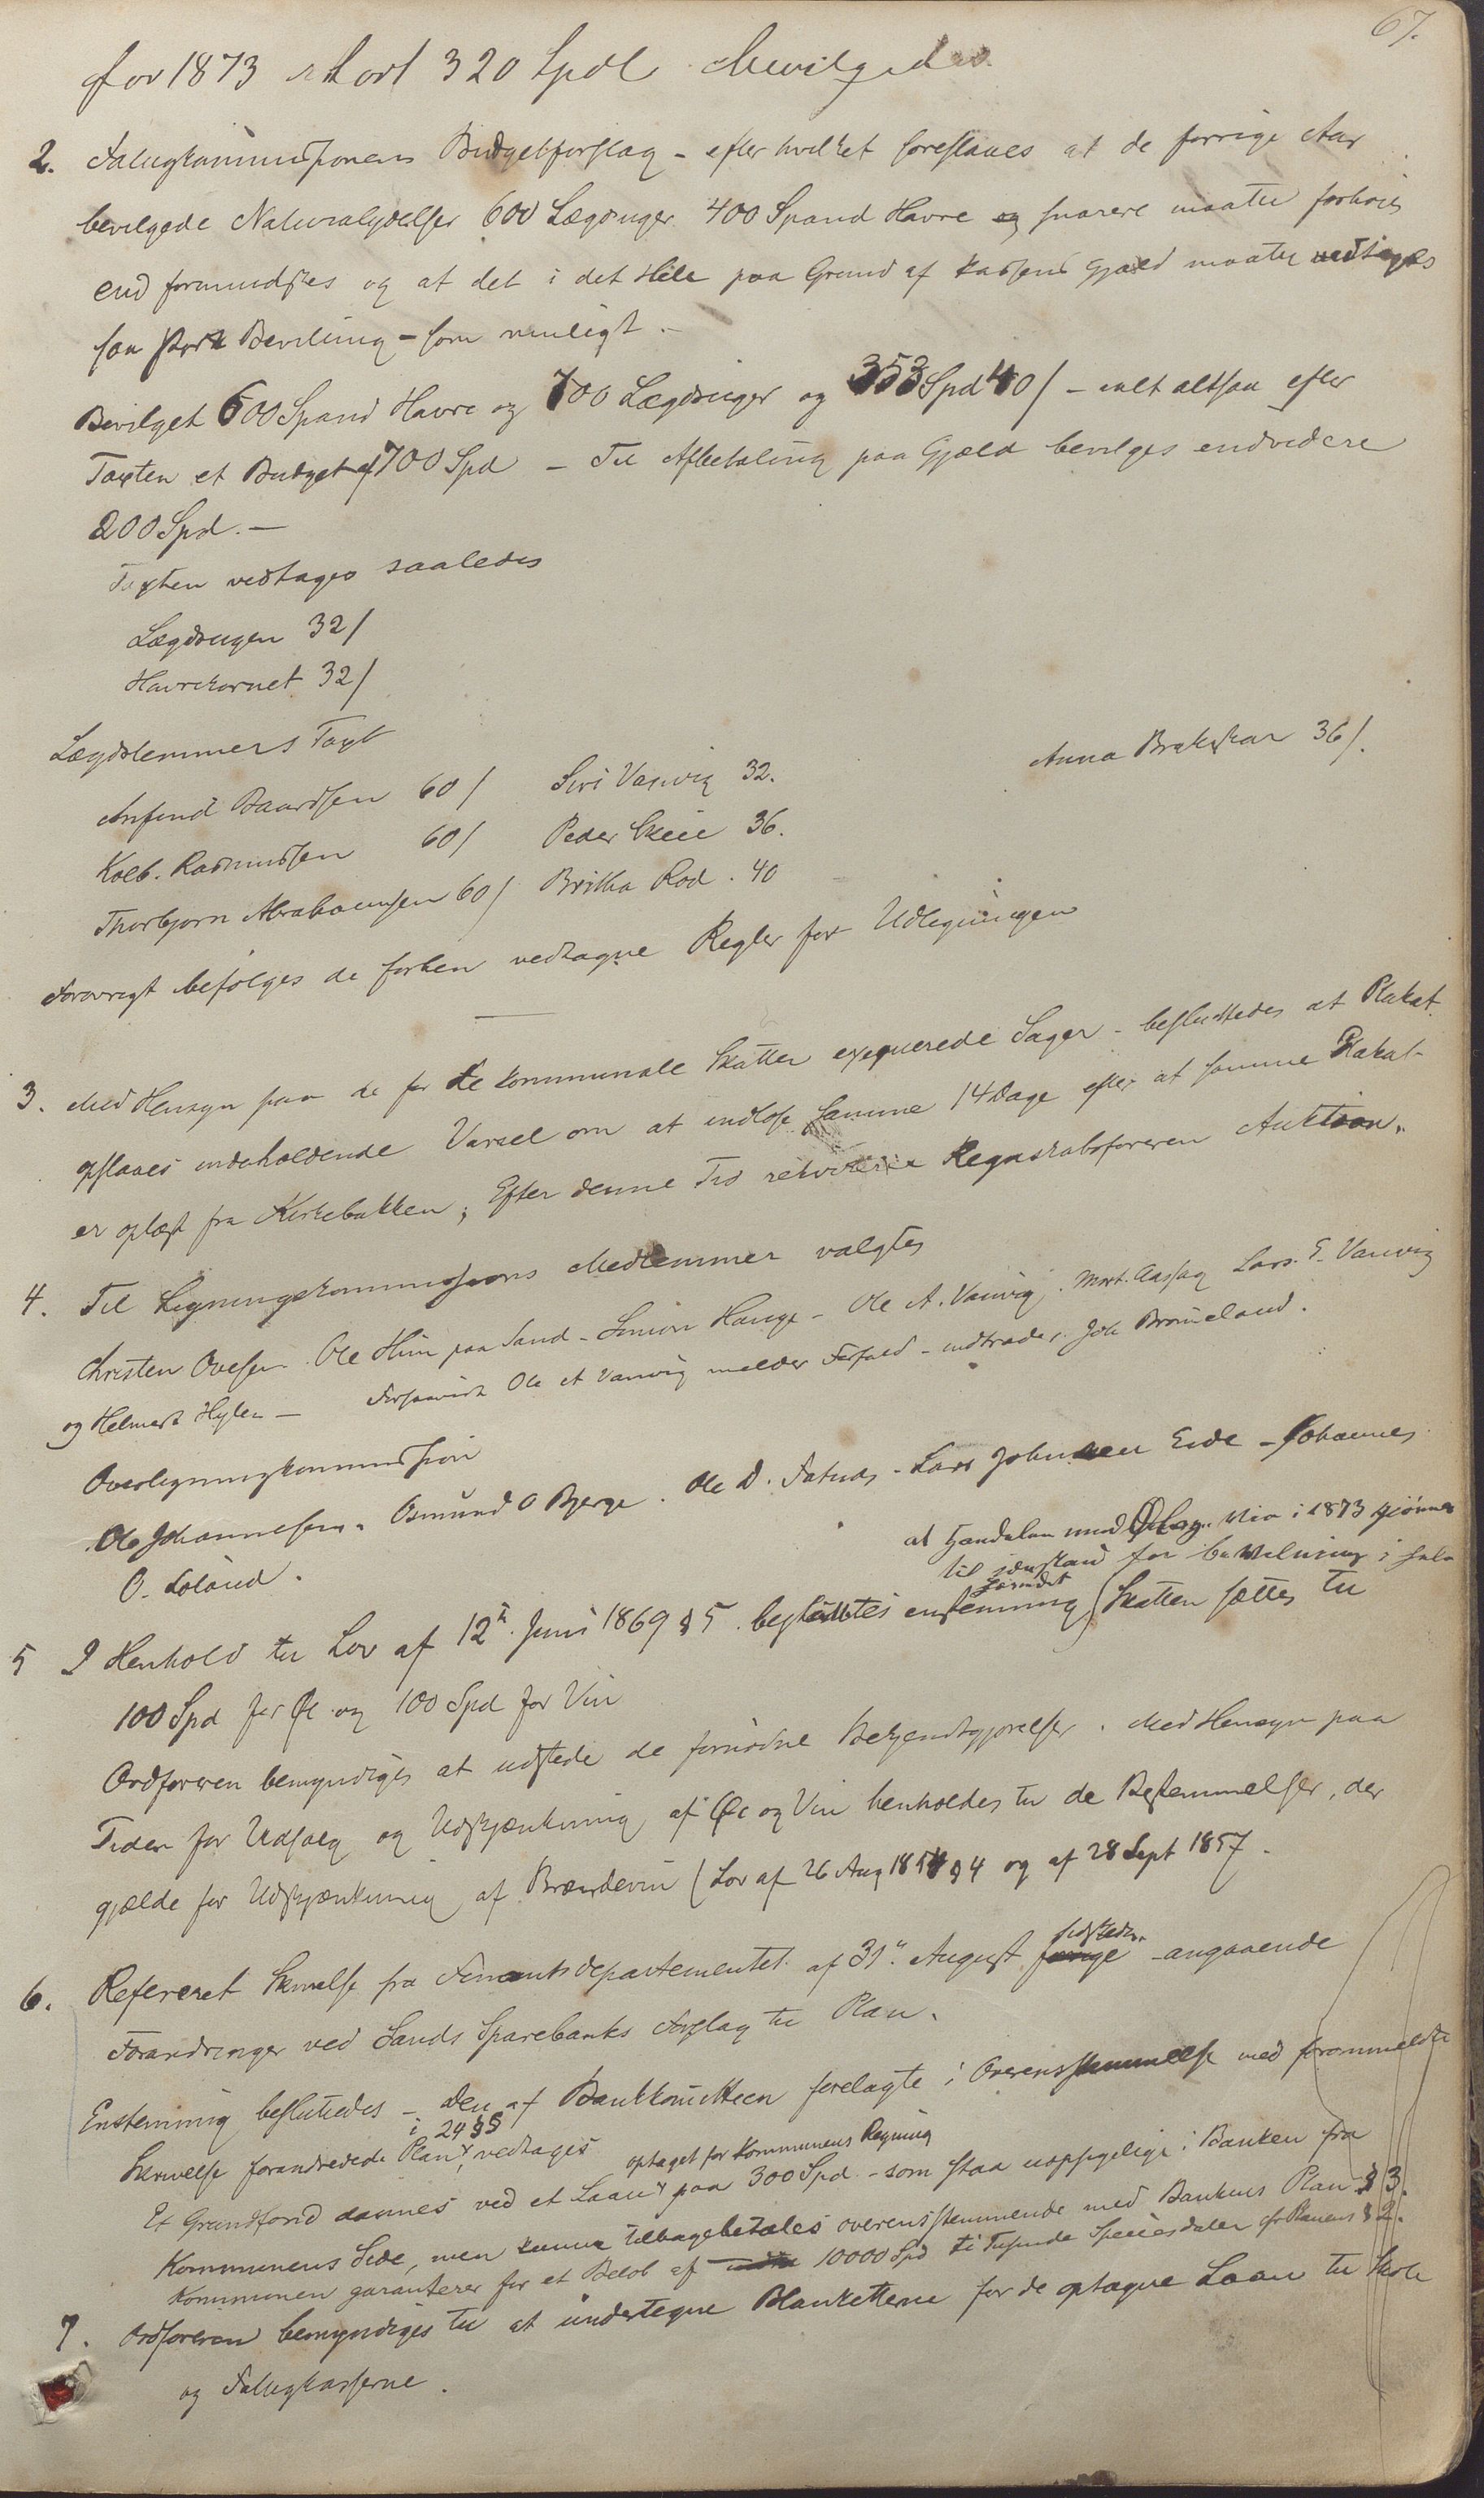 67.
for 1873 stort 320 Spdl bevilgedes.
2. Fatigkommissionens Budgetforslag - efter hvilket foreslaaes at de forrige Aar
bevilgede Naturalydelser 600 Lægdsuger 400 Spand Havre og snarere maatte forhøies
end formindskes og at det i det Hele paa Grund af Kassens Gjæld maatte vedtages
saa stor Bevilling - som muligt.
Bevilget 600 Spand Havre og 700 Lægdsuger og 353 Spd 40/ - ialt altsaa efter
Taxten et Budget af 700 Spd - Til Afbetaling paa Gjæld bevilges endvidere
200 Spd. -
Taxten vedtages saaledes
Lægdsugen 32/
Havrekornet 32/
Lægdslemmers Taxt
Anfind Baardsen 60/ Siri Vanvig 32. Anna Brekskar 36/.
Kolb. Rasmussen 60/ Peder Skeie 36.
Thorbjørn Abrahamsen 60/ Britha Rød. 40
Forøvrigt befølges de forhen vedtagne Regler for Udligningen
3. Med Hensyn paa de for de kommunale Skatter exequerede Sager - besluttedes at Plakat
opslaaes indeholdende Varsel om at indløse samme 14 Dage efter at samme Plakat
er oplæst fra Kirkebakken; Efter denne Tid rekvirerer Regnskabsføreren Auktion.
4. Til Ligningskommissions Medlemmer valgtes
Christen Ovesen. Ole Hiim paa Sand - Simon Hauge - Ole A. Vanvig. Mort. Aasag Lars E. Vanvig
og Helmert Hylen - Forsaavidt Ole A Vanvig melder Forfald - indtræder Joh Bromeland.
Overligningkommission
Ole Johannesen. Osmund O Bjerge. Ole D. Fatnes - Lars Johnsen Eide - Johannes
O. Løland.
at Handelen med Øl og Vin i 1873 gjøres
til gjenstand for beskatning i hele
Herredet
5 I Henhold til Lov af 12te Juni 1869 § 5. besluttetes enstemmig Skatten sættes til
100 Spd for Øl og 100 Spd for Vin
Ordføreren bemyndiges at udstede de fornødne Bekjendtgjørelser. Med Hensyn paa
Tiden for Udsalg og Udskjænkning af Øl og Vin henholdes til de Bestemmelser, der
gjælde for Udskjænkning af Brændevin (Lov af 26 Aug 1854 § 4 og af 28 Sept 1857.
6. Refereret Skrivelse fra Finantsdepartementet af 31te August forrige sidstleden angaaende
Forandringer ved Sands Sparebanks Forslag til Plan.
Enstemmig besluttedes - Den af Bankkomitteen forelagte i Overensstemmelse med foranmeldte
Skrivelse forandrede Plan i 24 §§ vedtages
Et Grundfond dannes ved et Laan optaget for Kommunens Regning paa 300 Spd - som staa uopsigelige i Banken fra
Kommunens Side, men kunne tilbagebetales overensstemmende med Bankens Plan § 3.
Kommunen garanterer for et Beløb af 10000 Spd ti Tusinde Speciesdaler cfr Planens § 2.
7. Ordføreren bemyndiges til at undertegne Blanketterne for de optagne Laan til Skole
og Fatigkasserne.